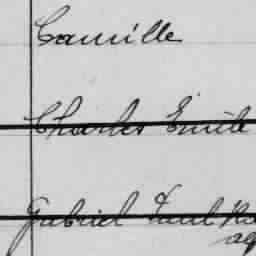 Camille
Charles Emile
Gabriel Paul